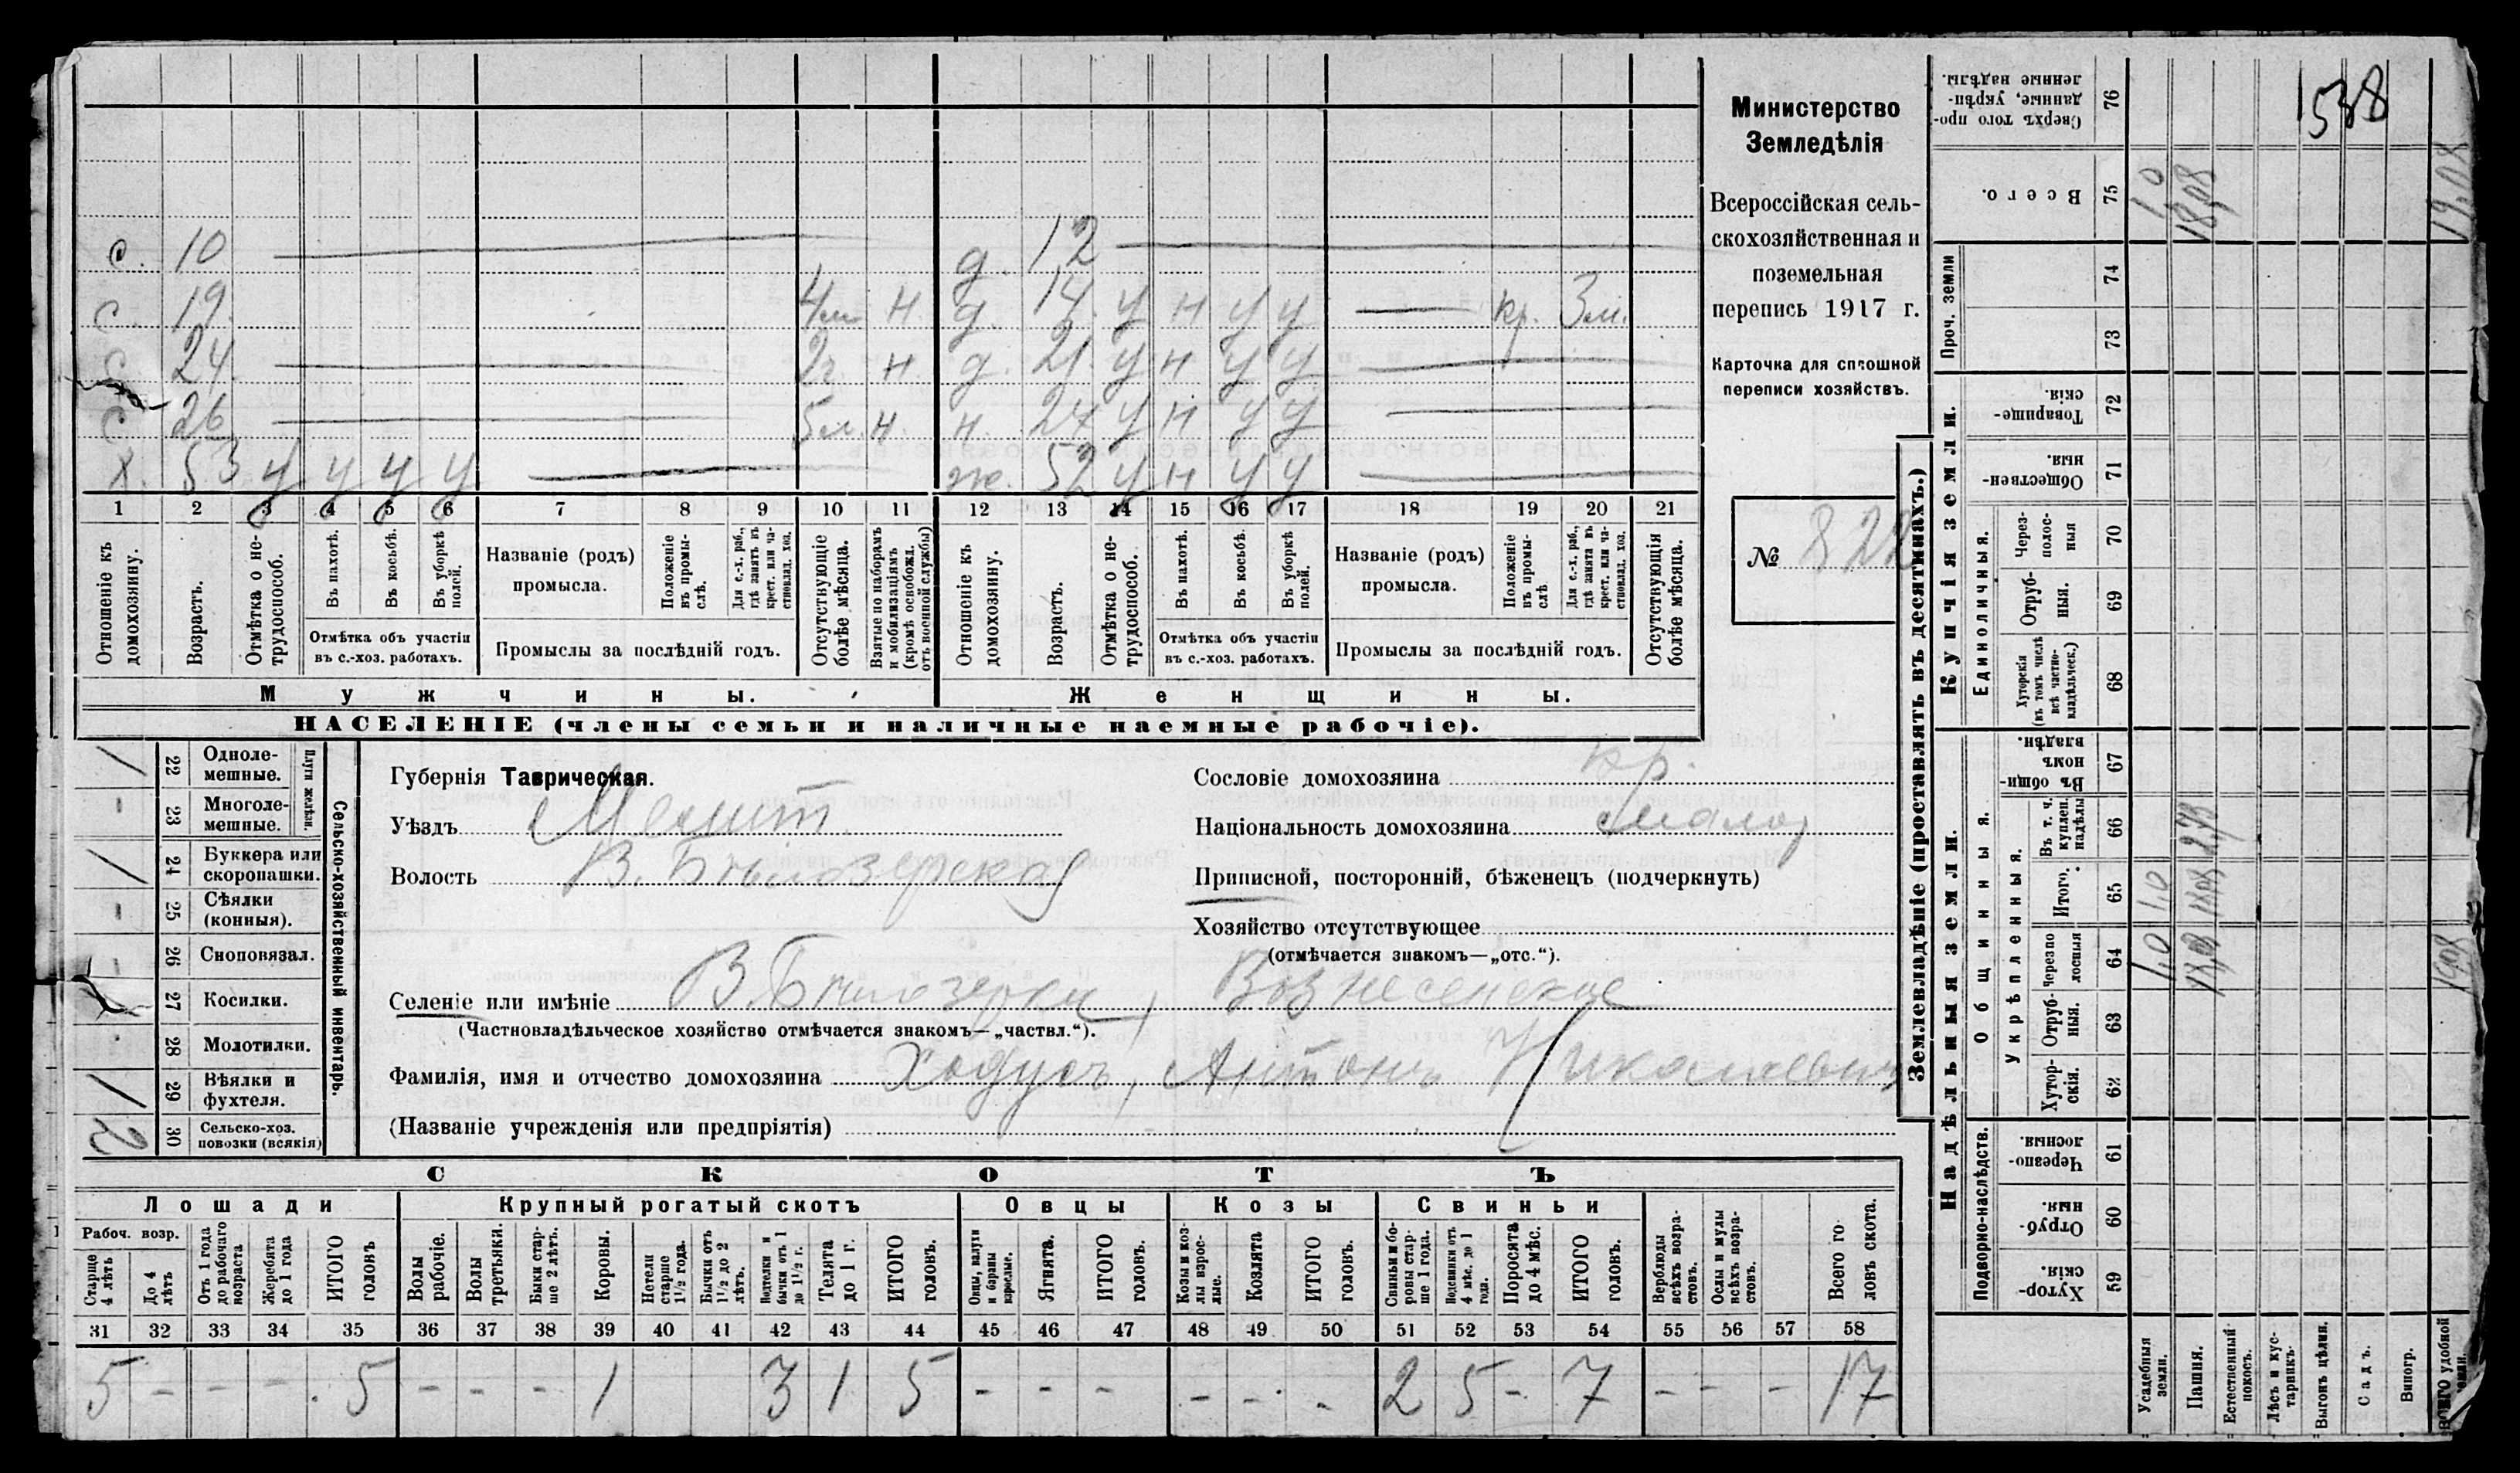 1538
Министерство
Земледѣлія
Всероссійская сель-
скохозяйственная и
поземельная
перепись 1917 г.
Карточка для сплошной
переписи хозяйствъ.
№ 822
с. 10 д. 12
с. 19. 4м н. д. 14. у н у у кр. 3м.
с 24. 2г н. д. 21. у н у у
с 26 5м. н. н. 24 у н у у
х. 53 у у у у ж. 52 у н у у
1 2 3 4 5 6 7 8 9 10 11 12 13 14 15 16 17 18 19 20 21
Отношеніе къ домохозяину.
Возрастъ.
Отмѣтка о не-трудоспособ.
Въ пахотѣ.
Въ косьбѣ.
Въ уборкѣ полей.
Отмѣтка объ участіи
въ с.-хоз. работахъ.
Названіе (родъ)
промысла.
Положеніе въ промы-слѣ.
Для с.-х. раб., гдѣ занятъ въ крест. или ча-стновлад. хоз.
Промыслы за послѣдній годъ.
Отсутствующіе болѣе мѣсяца.
Взятые по наборамъ и мобилизаціямъ (кромѣ освобожд. отъ военной службы)
Отношеніе къ домохозяину.
Возрастъ.
Отмѣтка о не-трудоспособ.
Въ пахотѣ.
Въ косьбѣ.
Въ уборкѣ полей.
Отмѣтка объ участіи
въ с.-хоз. работахъ.
Названіе (родъ)
промысла.
Положеніе въ промы-слѣ
Для с.-х. раб., гдѣ занята въ крест. или ча-стновлад. хоз.
Промыслы за послѣдній годъ.
Отсутствующія болѣе мѣсяца.
Мужчины. Женщины.
НАСЕЛЕНІЕ (члены семьи и наличные наемные рабочіе).
Сельско-хозяйственный инвентарь.
Плуги желѣзн.
/ 22 Одноле-мешные.
- 23 Многоле-мешные.
/ 24 Буккера или скоропашки.
- 25 Сѣялки (конныя).
- 26 Сноповязал.
27 Косилки.
28 Молотилки.
/ 29 Вѣялки и фухтеля.
2 30 Сельско-хоз. повозки (всякія)
Губернія Таврическая.
Уѣздъ Мелит.
Волость В. Бѣлозерская
Сословіе домохозяина кр.
Національность домохозяина малор
Приписной, посторонній, бѣженецъ (подчеркнуть)
Хозяйство отсутствующее
(отмѣчается знакомъ—„отс.“).
Селеніе или имѣніе В. Бѣлозерка, Вознесенское
(Частновладѣльческое хозяйство отмѣчается знакомъ—„частвл.“).
Фамилія, имя и отчество домохозяина Ходусъ, Антонъ Николаевичъ
(Названіе учрежденія или предпріятія)
СКОТЪ
Лошади Крупный рогатый скотъ Овцы Козы Свиньи
Рабоч. возр.
Старше 4 лѣтъ
До 4 лѣтъ
Отъ 1 года до рабочаго возраста
Жеребята до 1 года
ИТОГО головъ
Волы рабочіе.
Волы третьяки.
Быки стар-ше 2 лѣтъ.
Коровы.
Нетели старше 1½ года.
Бычки отъ 1½ до 2 лѣтъ.
Подтелки и бычки отъ 1 до 1½ г.
Телята до 1 г.
ИТОГО головъ.
Овцы, валухи и бараны взрослые.
Ягнята.
ИТОГО головъ.
Козы и коз-лы взрос-лые.
Козлята
ИТОГО головъ.
Свиньи и бо-ровы стар-ше 1 года.
Подсвинки отъ 4 мѣс. до 1 года.
Поросята до 4 мѣс.
ИТОГО головъ.
Верблюды всѣхъ возра-стовъ.
Ослы и мулы всѣхъ возра-стовъ.
Всего го-ловъ скота.
31 32 33 34 35 36 37 38 39 40 41 42 43 44 45 46 47 48 49 50 51 52 53 54 55 56 57 58
5 - - - 5 - - - 1 3 1 5 - - - - - - 2 5 - 7 - - - 17
Землевладѣніе (проставлять въ десятинахъ.)
Купчія земли.
Надѣльныя земли.
76 Сверхъ того про-данные, укрѣп-ленные надѣлы.
75 Всего. 1,0 18,08 19,08
Проч. земли
74
73
72 Товарище-скія.
71 Обществен-ныя.
Единоличныя.
70 Через-полос-ныя
69 Отруб-ныя.
68 Хуторскія (въ томъ числѣ всѣ частно-владѣльческ.)
Общинныя.
67 Въ общи-номъ владѣн.
Укрѣпленныя.
66 Въ т. ч. куплен. надѣлы
65 Итого. 1,0 18,08
64 Черезпо лосныя 1,0 18,08 19,08
63 Отруб-ныя.
62 Хутор-скія.
Подворно-наслѣдств.
61 Черезпо-лосныя.
60 Отруб-ныя
59 Хутор-скія.
Усадебныя земли.
Пашня.
Естественный покосъ.
Лѣсъ и кус-тарникъ.
Выгонъ цѣлин.
Садъ.
Виногр.
Всего удобной земли.